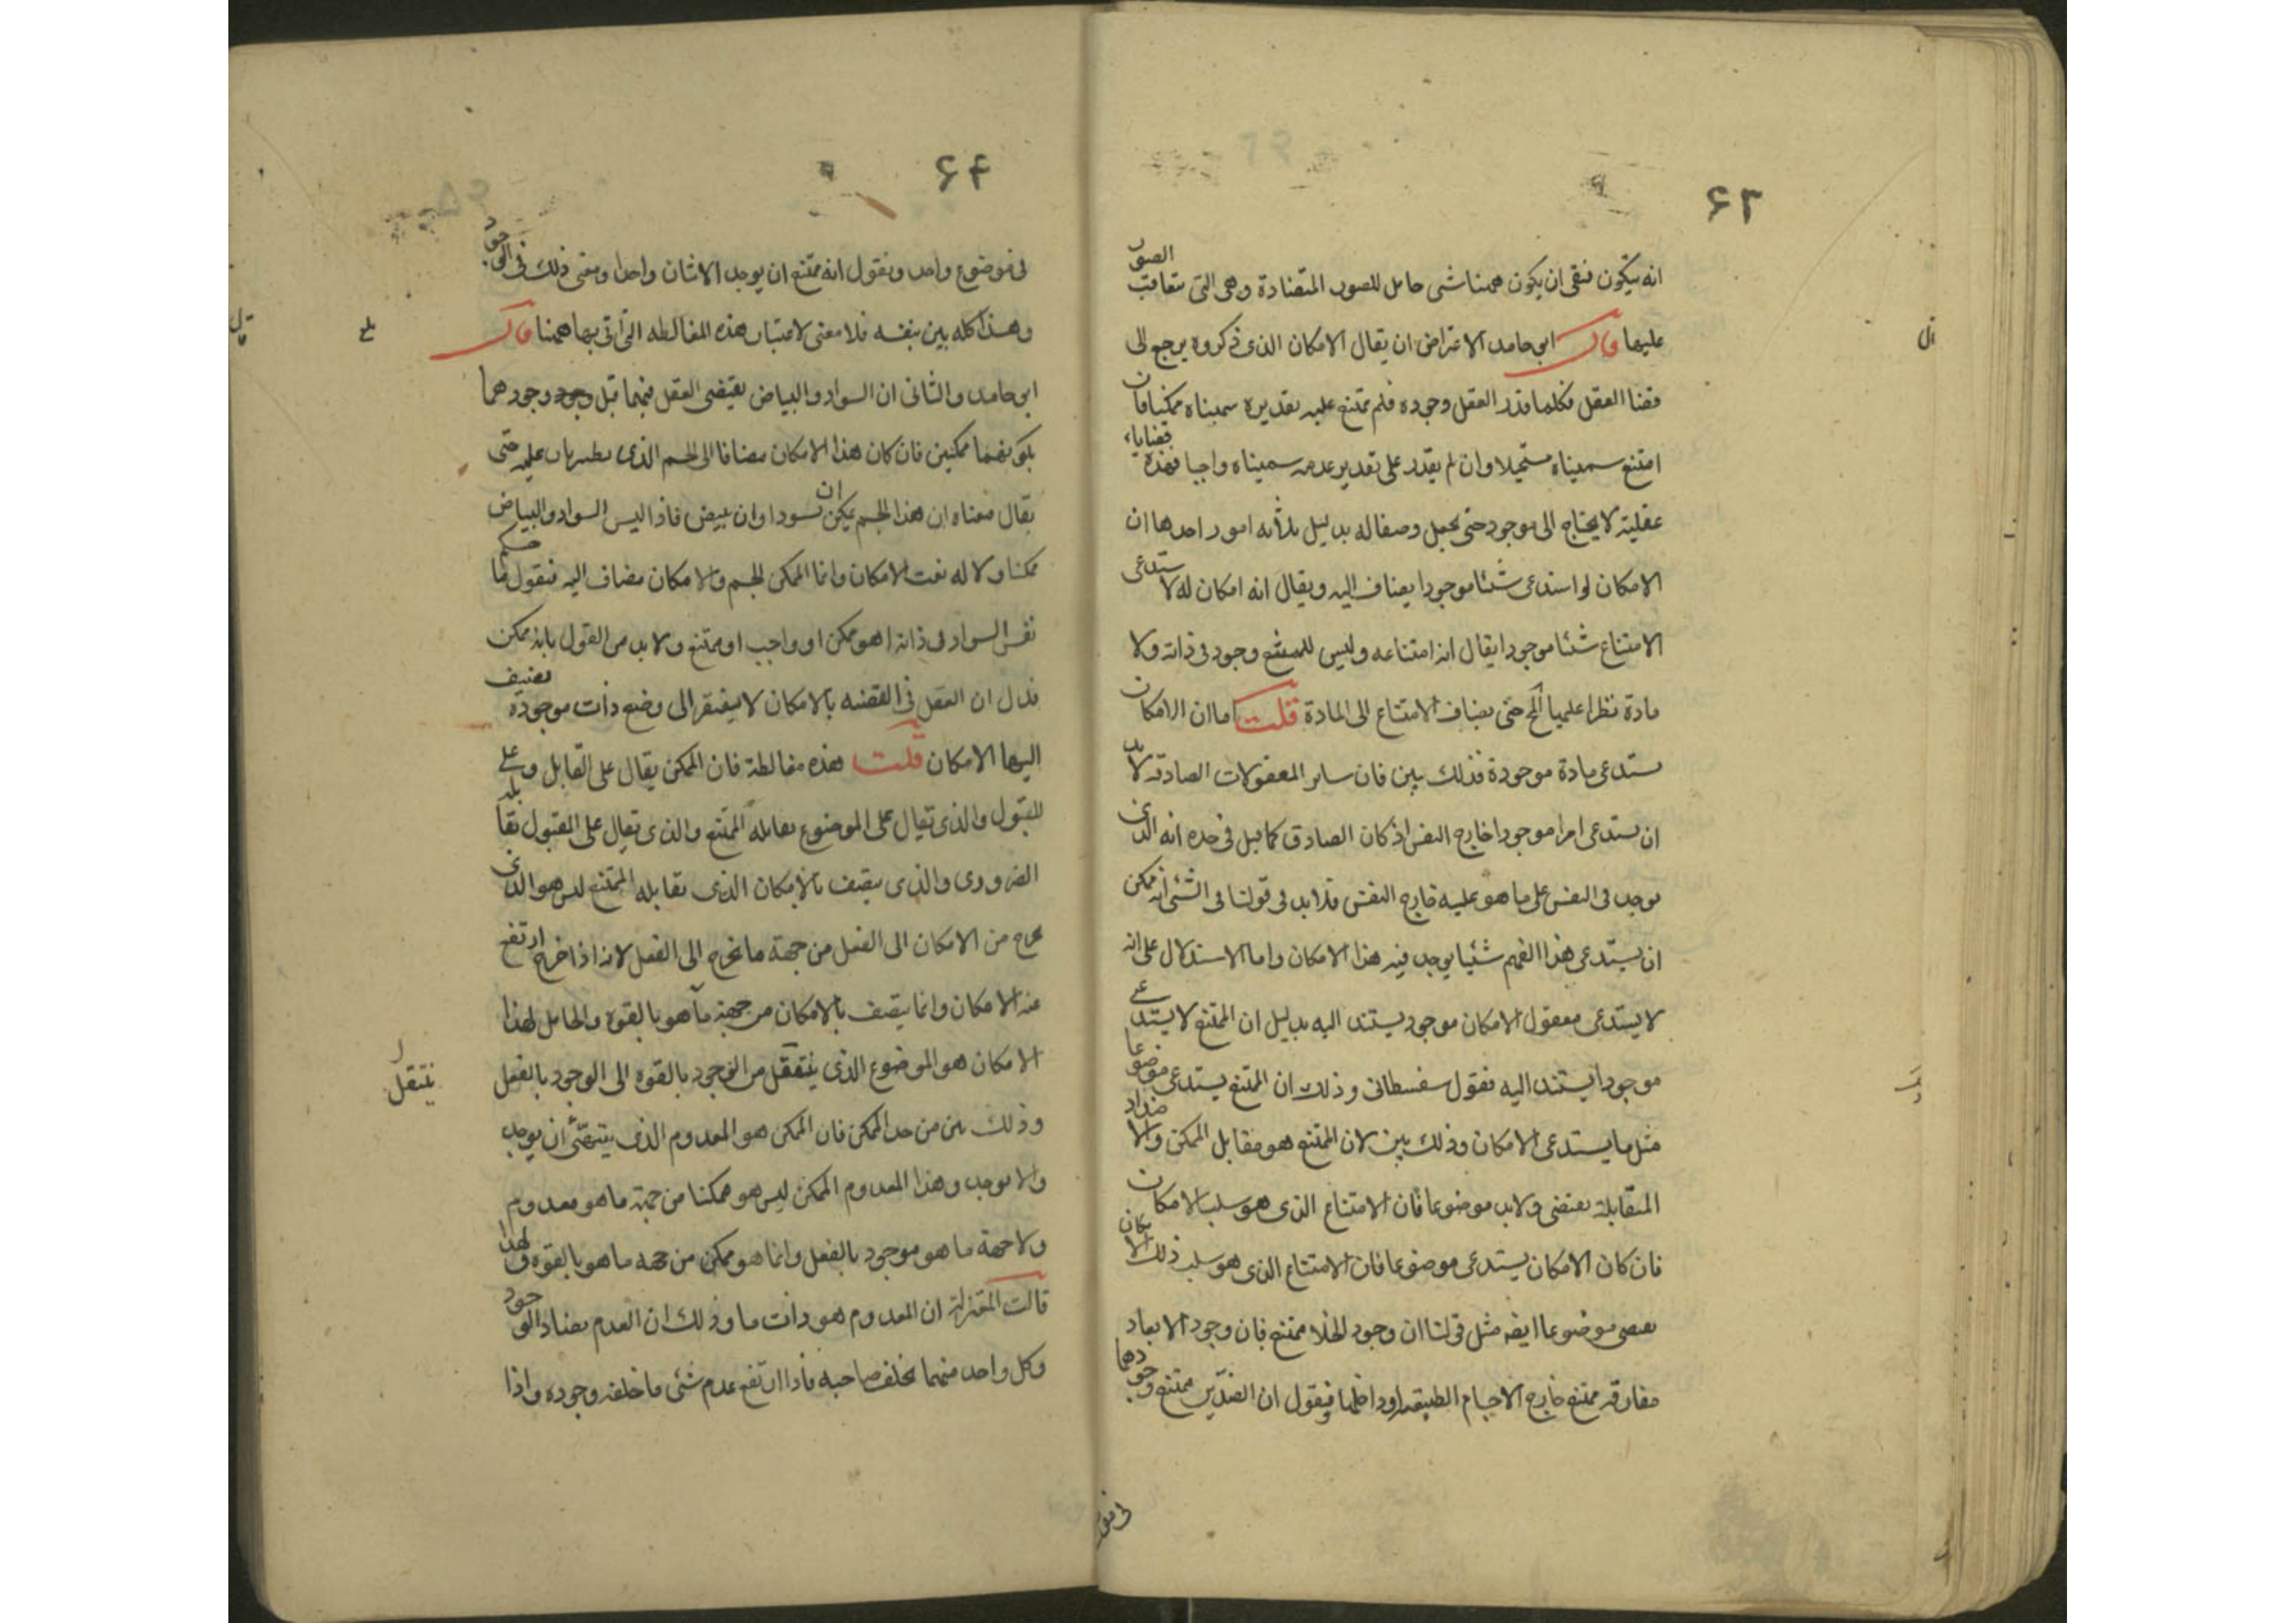 ۶۳
انه يتكون فبقى ان يكون ههنا شئ حامل للصور المتضادة وهى التى تتعاقب الصور
عليها قال ابى حامد الاعتراض ان يقال الامكان الذى ذكروه يرجع الى
قضا العقل فكلما قدر العقل وجوده فلم يمتنع عليه تقديره سميناه ممكنا فان
امتنع سميناه مستحيلا وان لم يقدر على تقدير عدمه سميناه واجبا فهذه قضايا
عقلية لا يحتاج الى موجود حتى يجعل وصفا له بدليل ثلثة امور احدها ان
الامكان لو استدعى شئا موجودا يضاف اليه ويقال انه امكان له لاستدعى
الامتناع شئا موجودا يقال انه امتناعه وليس للممتنع وجود فى ذاته ولا
مادة نظرا عليها المح حتى يضاف الامتناع الى المادة قلت اما ان الامكان
يستدعى مادة موجودة فذلك بين فان ساير المعقولات الصادقة لا بد
ان يستدعى امرا موجودا خارج النفس اذ كان الصادق كما قيل فى حده انه الذى
يوجد فى النفس على ما هو عليه خارج النفس فلا بد فى قولنا فى الشئ انه ممكن
ان يستدعى هذا الفهم شئيا يوجد فيه هذا الامكان واما الاستدلال على انه
لا يستدعى معقول الامكان موجود يستند اليه بدليل ان الممتنع لا يستدعى
موجودا يستند اليه فقول سفسطانى وذلك ان الممتنع يستدعى موضوعا
مثل ما يستدعى الامكان وذلك بين لان الممتنع هو مقابل الممكن والاضداد
المتقابلة يقتضى ولا بد موضوعا فان الامتناع الذى هو سلب الامكان
فان كان الامكان يستدعى موضوعا فان الامتناع الذى هو سلب ذلك الامكان
يقتضى موضوعا ايضه مثل قولنا ان وجود الخلا ممتنع فان وجود الابعاد
مفارقه ممتنع خارج الاجسام الطبيعيه او داخلها ونقول ان الضدين ممتنع وجودهما
فى موضوع
۶۴
فى موضوع واحد ونقول انه ممتنع ان يوجد الاثنان واحدا ومعنى ذلك فى الوجود
وهذا كله بين بنفسه فلا معنى لاعتبار هذه المغالطه التى اتى بها ههنا قال
ابى حامد والثانى ان السواد والبياض يقتضى العقل فيهما قبل وجود وجودهما
بكونهما ممكنين فان كان هذا الامكان مضافا الى الجسم الذى يطريان عليه حتى
يقال معناه ان هذا الجسم يمكن ان يسود او ان يبيض فاذا ليس السواد والبياض
ممكنا ولا له نعت الامكان وانما الممكن الجسم والامكان مضاف اليه فنقول ما حكم
نفس السواد فى ذاته اهو ممكن او واجب او ممتنع ولا بد من القول بانه ممكن
فدل ان العقل فى القضيه بالامكان لا يفتقر الى وضع ذات موجودة يضيف
اليها الامكان قلت هذه مغالطة فان الممكن يقال على القابل وعلى
المقبول والذى يقال على الموضوع يقابله الممتنع والذى يقال على المقبول يقابله
الضرورى والذى يتصف بالامكان الذى يقابله الممتنع ليس هو الذى
يخرج من الامكان الى الفعل من جهة ما يخرج الى الفعل لانه اذا خرج ارتفع
عنه الامكان وانما يتصف بالامكان من جهة ما هو بالقوه والحامل لهذا
الامكان هو الموضوع الذى ينتقل من الوجود بالقوه الى الوجود بالفعل
ينتقل
وذلك بين من حد الممكن فان الممكن هو المعدوم الذى يتهيّئ ان يوجد
والا يوجد وهذا المعدوم الممكن ليس هو ممكنا من جهة ما هو معدوم
ولا جهة ما هو موجود بالفعل وانما هو ممكن من جهه ما هو بالقوه ولهذا
قالت المعتزلة ان المعدوم هو ذات ما وذلك ان العدم يضاد الوجود
وكل واحد منهما يخلف صاحبه فاذا ارتفع عدم شئ ما خلفه وجوده واذا